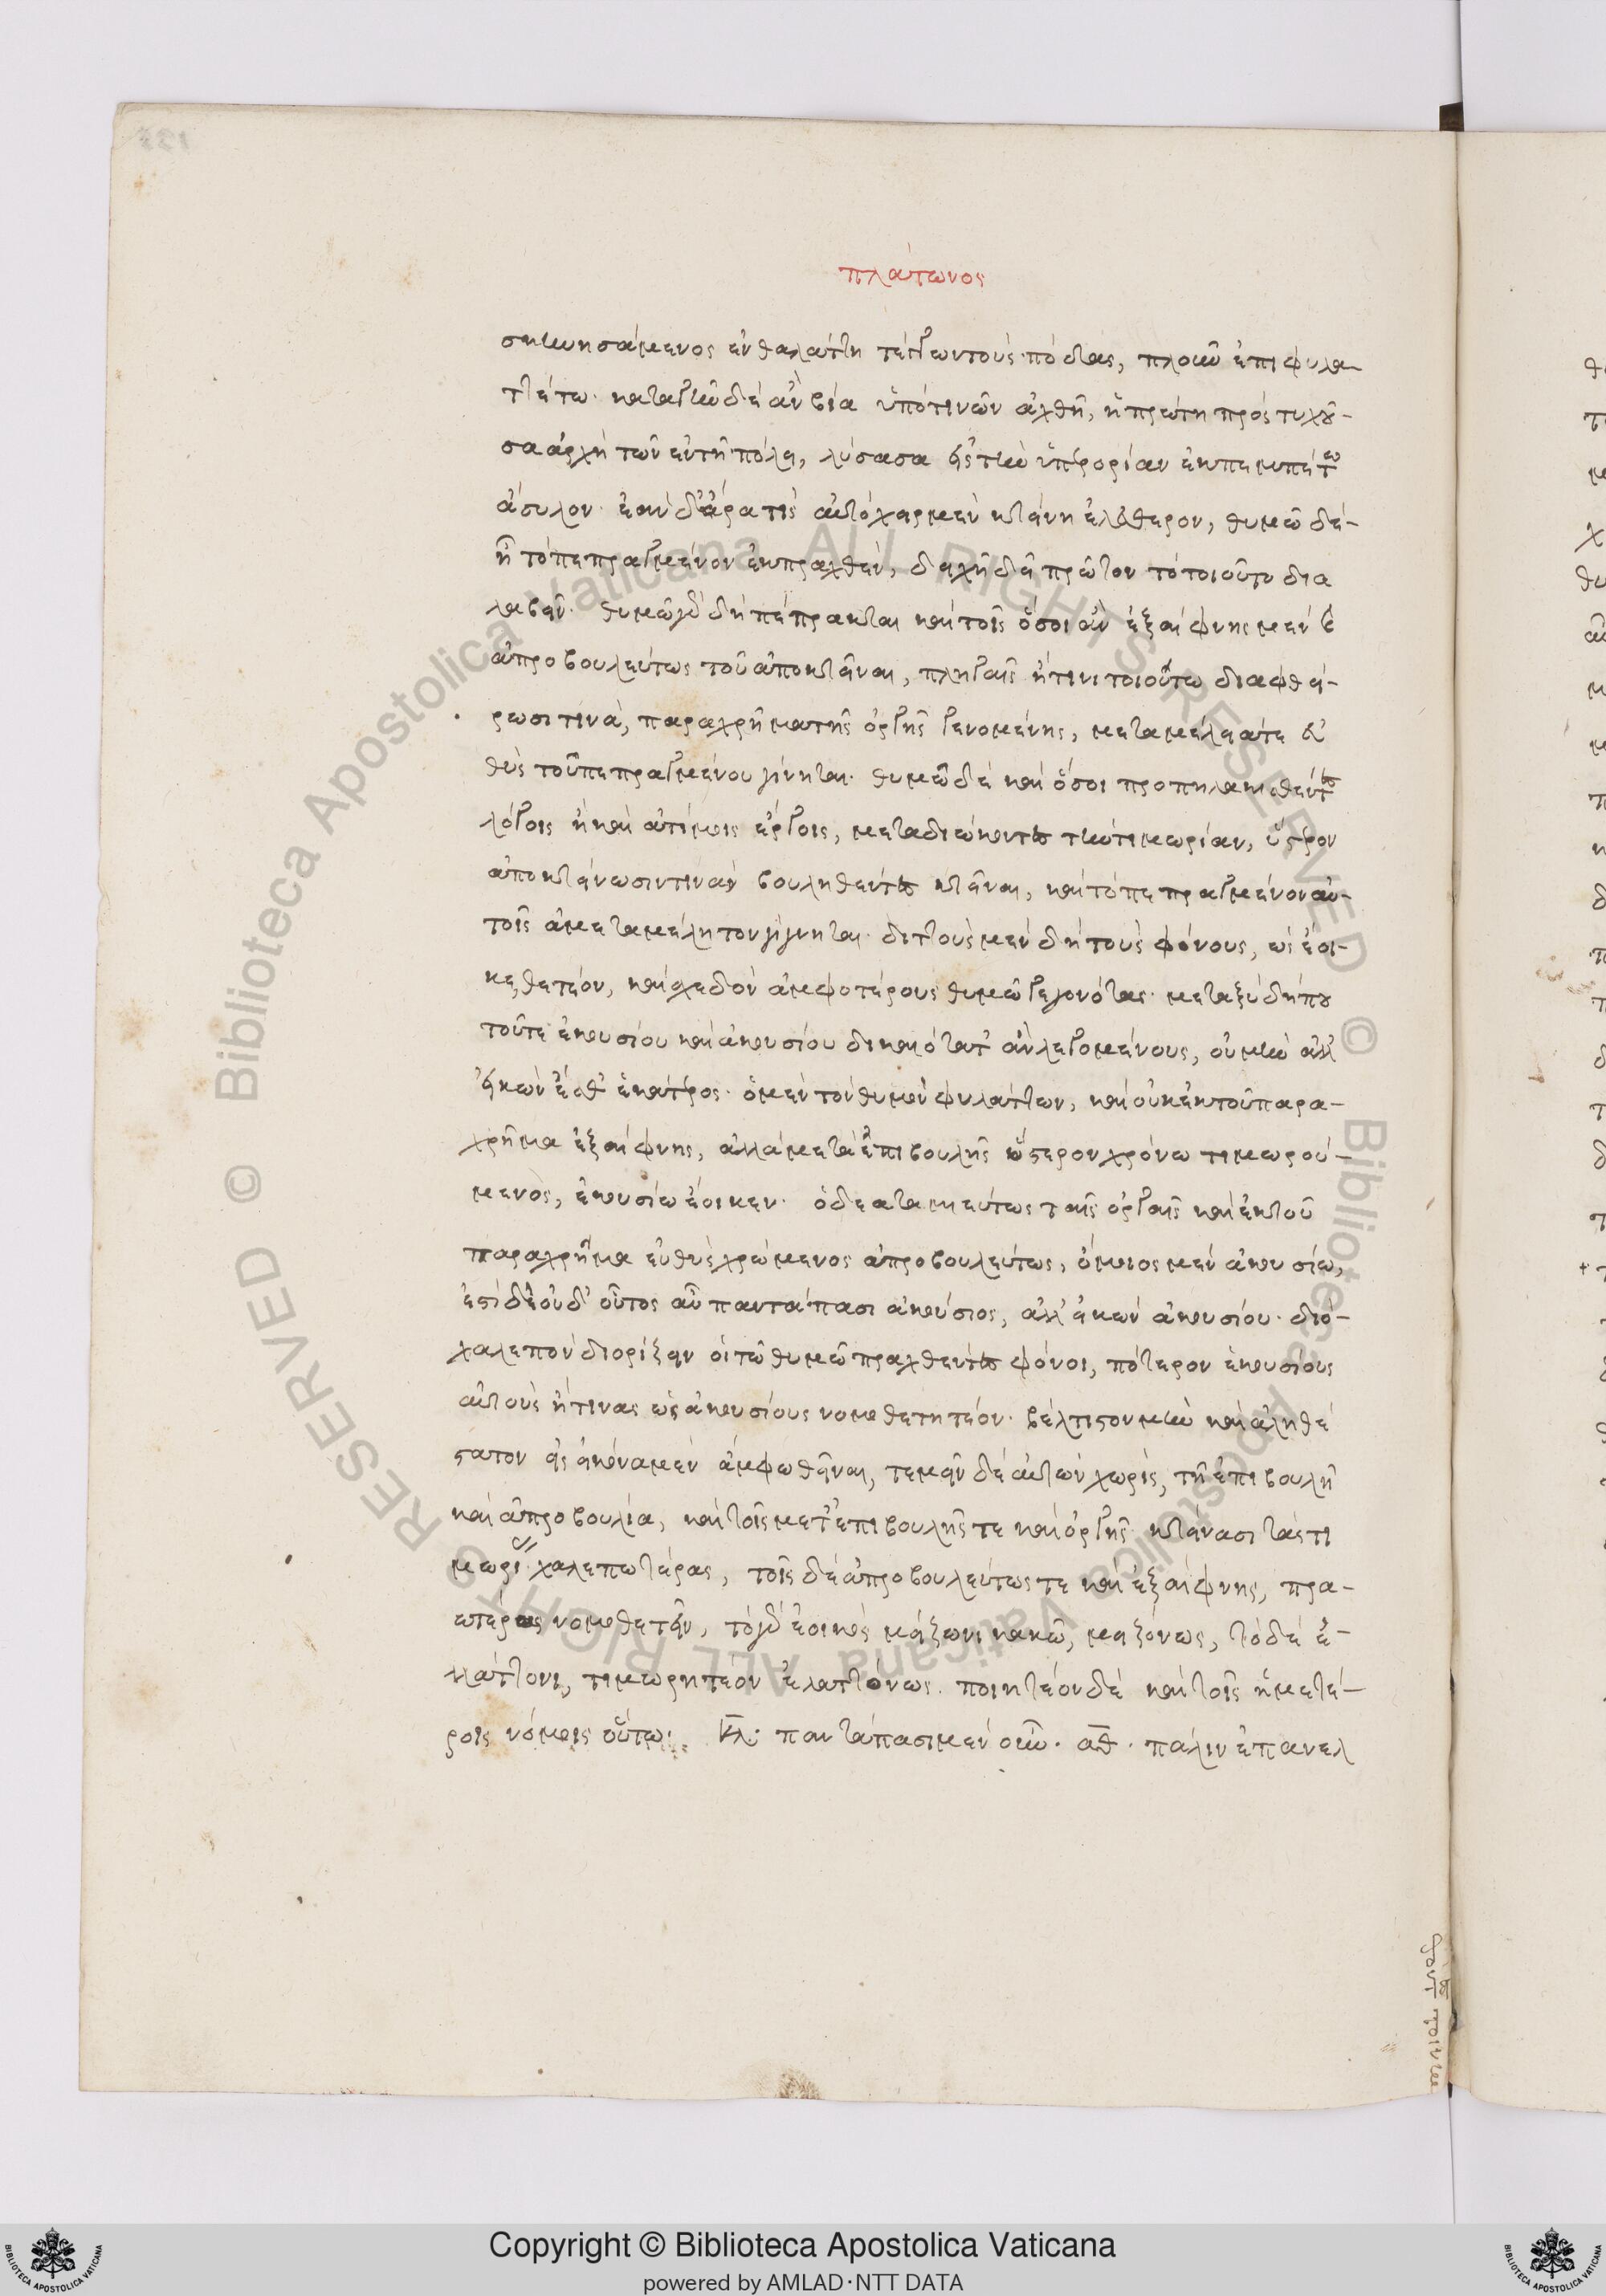 πλάτωνος
σκηνησάμενος ἐν θαλάττη τέγγων τοὺς πόδας, πλοῦν ἐπιφυλα
ττέτω. κατὰ γῆν δὲ ἂν βία ὑπό τινῶν ἀχθῆ, ἡ πρώτη προστυχοῦ-
σα ἀρχὴ τῶν ἐν τῆ πόλει, λύσασα εἰς τὴν ὑπερορίαν ἐκπεμπέτω
ἄσυλον. ἐὰν δ' ἄρα τις αὐτόχειρ μὲν κτείνη ἐλεύθερον, θυμῶ δὲ-
ἦ τὸ πεπραγμένον ἐκπραχθὲν, διχῆ δεῖ πρῶτον τὸ τοιοῦτο δια
λαβεῖν. θυμῶ γὰρ δὴ πέπρακται καὶ τοῖς ὅσοι ἂν ἐξαίφνης μὲν καὶ
ἀπροβουλεύτως τοῦ ἀποκτεῖναι, πληγαῖς ἤ τινι τοιούτω διαφθεί-
ρωσι τινὰ, παραχρῆμα τῆς ὀργῆς γενομένης, μεταμέλειά τε εὐ
θὺς τοῦ πεπραγμένου γίνηται. θυμῶ δὲ καὶ ὅσοι προπηλακισθέντες
λόγοις ἢ καὶ ἀτίμοις ἔργοις, μεταδιώκοντες τὴν τιμωρίαν, ὕστερον
ἀποκτείνωσιν τινὰ βουληθέντες κτεῖναι, καὶ τὸ πεπραγμένον αὐ-
τοῖς ἀμεταμέλητον γίγνηται. διττοὺς μὲν δὴ τοὺς φόνους, ὡς ἔοι-
κε, θετέον, καὶ σχεδὸν ἀμφοτέρους θυμῶ γεγονότας. μεταξὺ δή που
τοῦ τε ἑκουσίου καὶ ἀκουσίου δικαιότατ' ἂν λεγομένους, οὐ μὴν ἀλλ'
εἰκών ἐσθ' ἑκάτερος. ὁ μὲν τὸν θυμὸν φυλάττων, καὶ οὐκ ἐκ τοῦ παρα-
χρῆμα ἐξαίφνης, ἀλλὰ μετὰ ἐπιβουλῆς ὕστερον χρόνω τιμωρού-
μενος, ἑκουσίω ἔοικεν. ὁ δὲ ἀταμιεύτως ταῖς ὀργαῖς καὶ ἐκ τοῦ
παραχρῆμα εὐθὺς χρώμενος ἀπροβουλεύτως, ὅμοιος μὲν ἀκουσίω,
ἐστὶ δὲ οὐδ' οὗτος αὖ παντάπασι ἀκούσιος, ἀλλ' εἰκὼν ἀκουσίου. διὸ-
χαλεπὸν διορίζειν οἱ τῶ θυμῶ πραχθέντες φόνοι, πότερον ἑκουσίους
αὐτοὺς ἤ τινας ὡς ἀκουσίους νομοθετητέον. βέλτιστον μὴν καὶ ἀληθέ
στατον εἰς εἰκόνα μὲν ἄμφω θεῖναι, τεμεῖν δὲ αὐτὼν χωρὶς, τῆ ἐπιβουλῆ
καὶ ἀπροβουλία, καὶ τοῖς μετ' ἐπιβουλῆς τε καὶ ὀργῆς κτείνασι τὰς τι
μωρίας χαλεπωτέρας, τοῖς δὲ ἀπροβουλεύτως τε καὶ ἐξαίφνης, πρα-
ωτέρας νομοθετεῖν, τὸ γὰρ ἐοικὸς μείζωνι κακῶ, μειζόνως, τὸ δὲ ἐ-
λάττονι, τιμωρητέον ἐλαττόνως. ποιητέον δὲ καὶ τοῖς ἡμετέ-
ροις νόμοις οὕτω: κλ: παντάπασι μὲν οὖν. αθ. πάλιν ἐπανελ